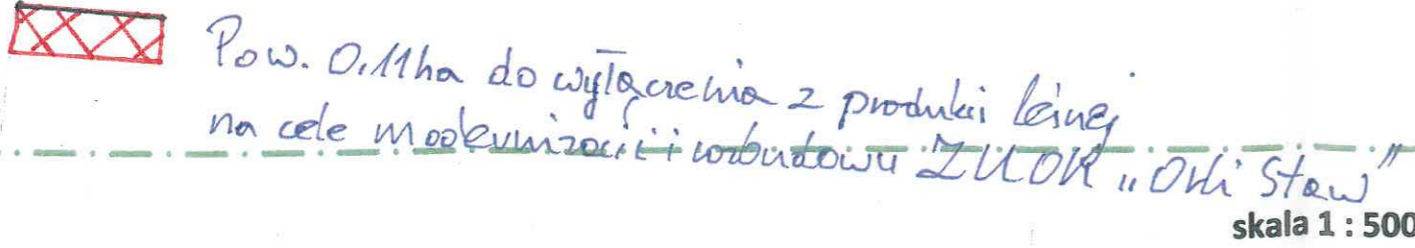 Pow. 0.11ha do wyłączenia z produkcji leśnej
na cele modernizacji i rozbudowy ZUOK „Orli Staw"
skala 1 : 500